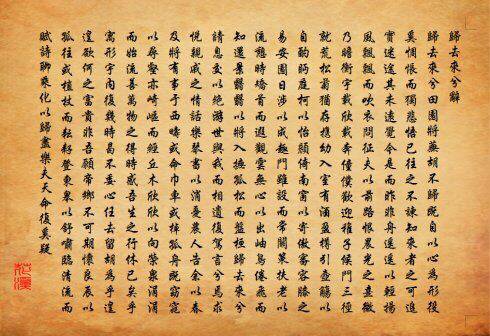 歸去來兮辭
歸去來兮田園將蕪胡不歸既自以心為形役
奚惆悵而獨悲悟已往之不諫知來者之可追
實迷途其未遠覺今是而昨非舟遙遙以輕揚
風飄飄而吹衣問征夫以前路恨晨光之熹微
乃瞻衡宇載欣載奔僮僕歡迎稚子候門三徑
就荒松菊猶存攜幼入室有酒盈樽引壺觴以
自酌眄庭柯以怡顏倚南窗以寄傲審容膝之
易安園日涉以成趣門雖設而常關策扶老以
流憩時矯首而遐觀雲無心以出岫鳥倦飛而
知還景翳翳以將入撫孤松而盤桓歸去來兮
請息交以絕游世與我而相遺復駕言兮焉求
悅親戚之情話樂琴書以消憂農人告余以春
及將有事于西疇或命巾車或棹孤舟既窈窕
以尋壑亦崎嶇而經丘木欣欣以向榮泉涓涓
而始流善萬物之得時感吾生之行休已矣乎
寓形宇內復幾時曷不委心任去留胡為乎遑
遑欲何之富貴非吾願帝鄉不可期懷良辰以
孤往或植杖而耘耔登東皋以舒嘯臨清流而
賦詩聊乘化以歸盡樂夫天命復奚疑